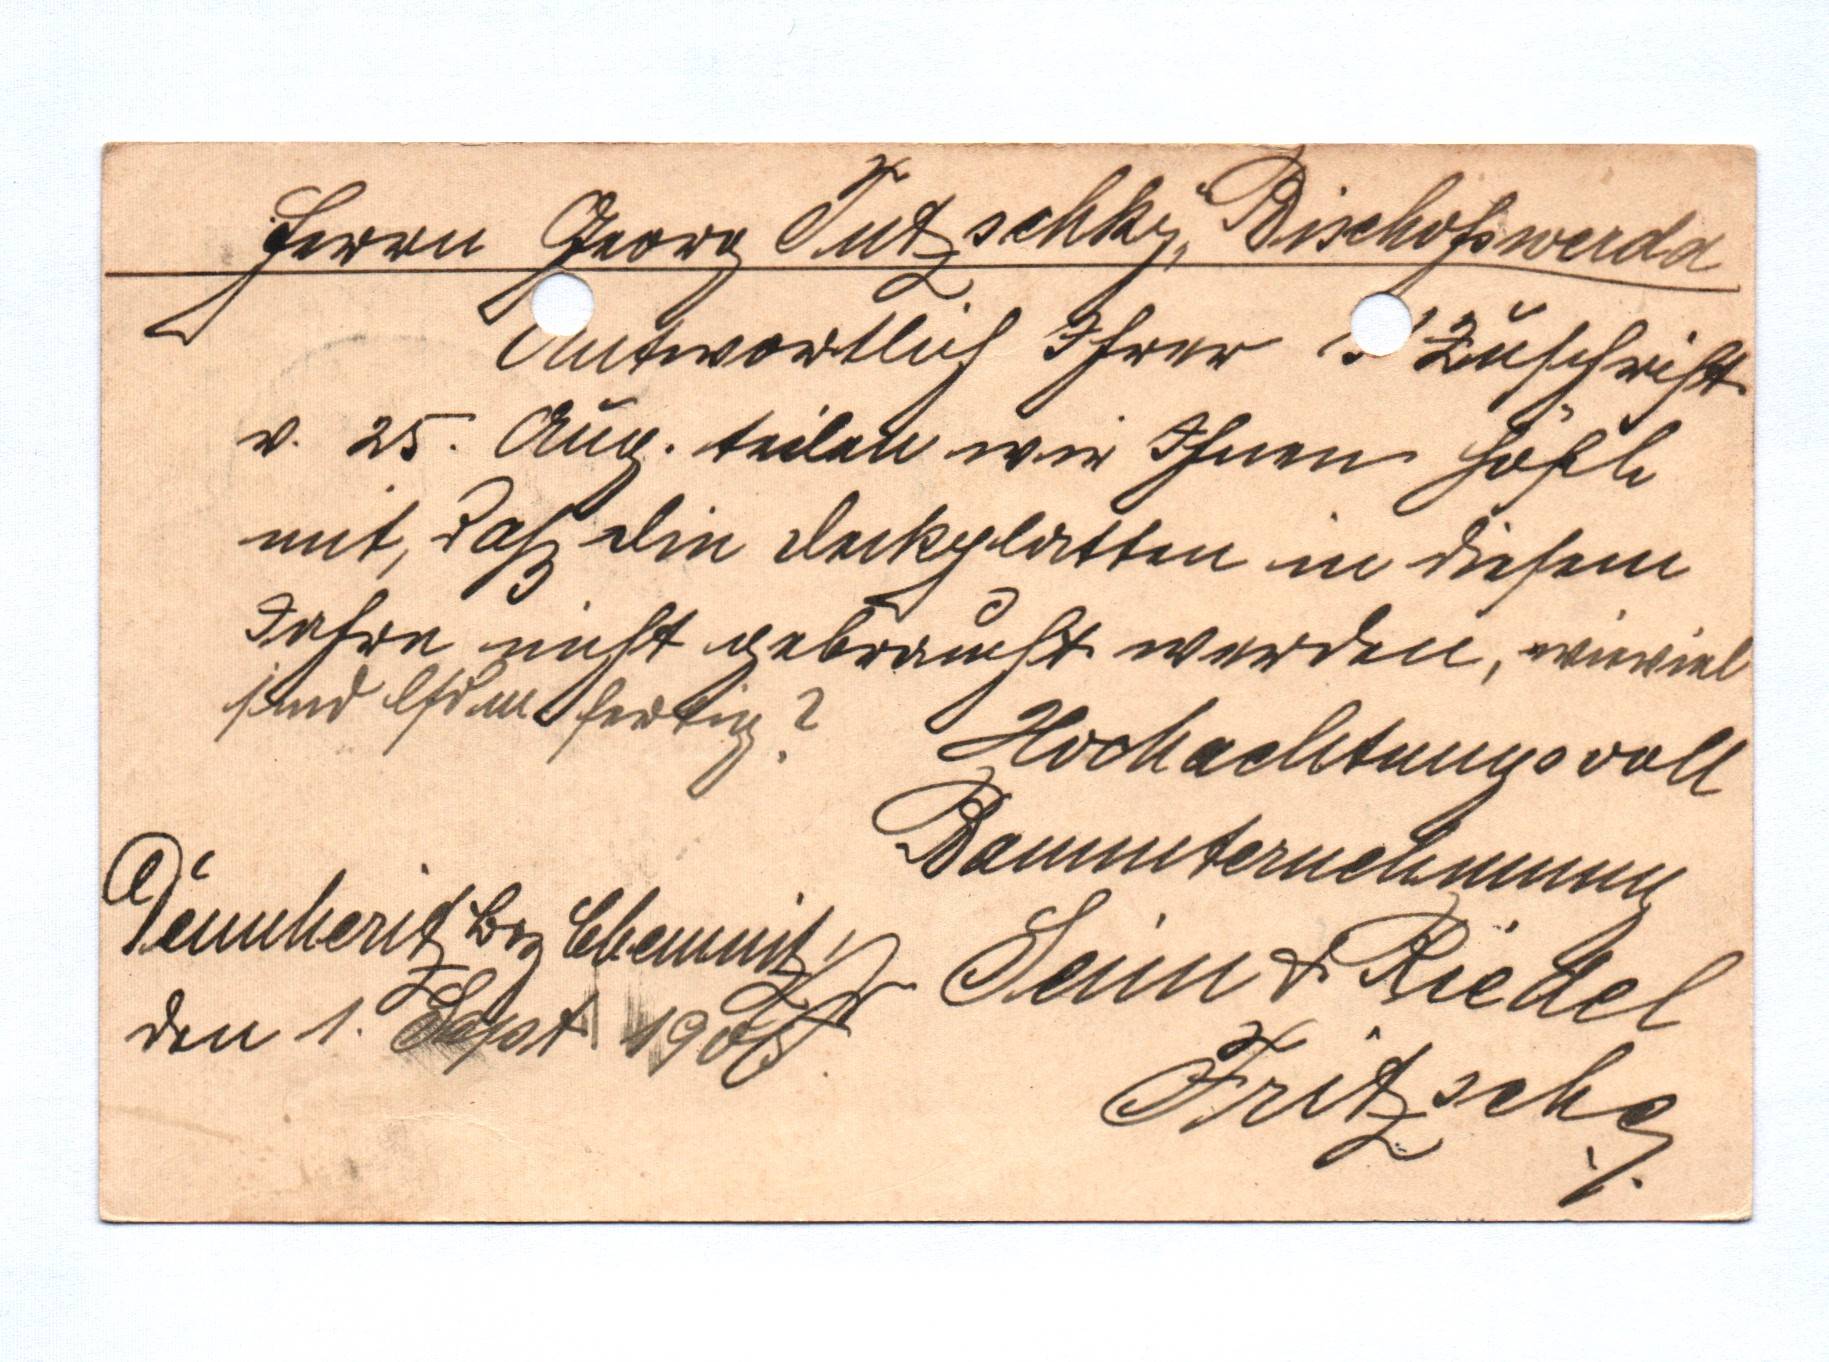 Herrn Georg Tutzschky, Bischofswerda
Antwortlich Ihrer Zuschrift
v. 25. Aug. teilen wir Ihnen höfl.
mit, daß die Deckplatten in diesem
Jahre nicht gebraucht werden, wieviel
sind lfdm fertig?
Hochachtungsvoll
Bauunternehmung
Seim & Riedel
Fritzsche
Dennheritz Bez Chemnitz
den 1. Sept 1905